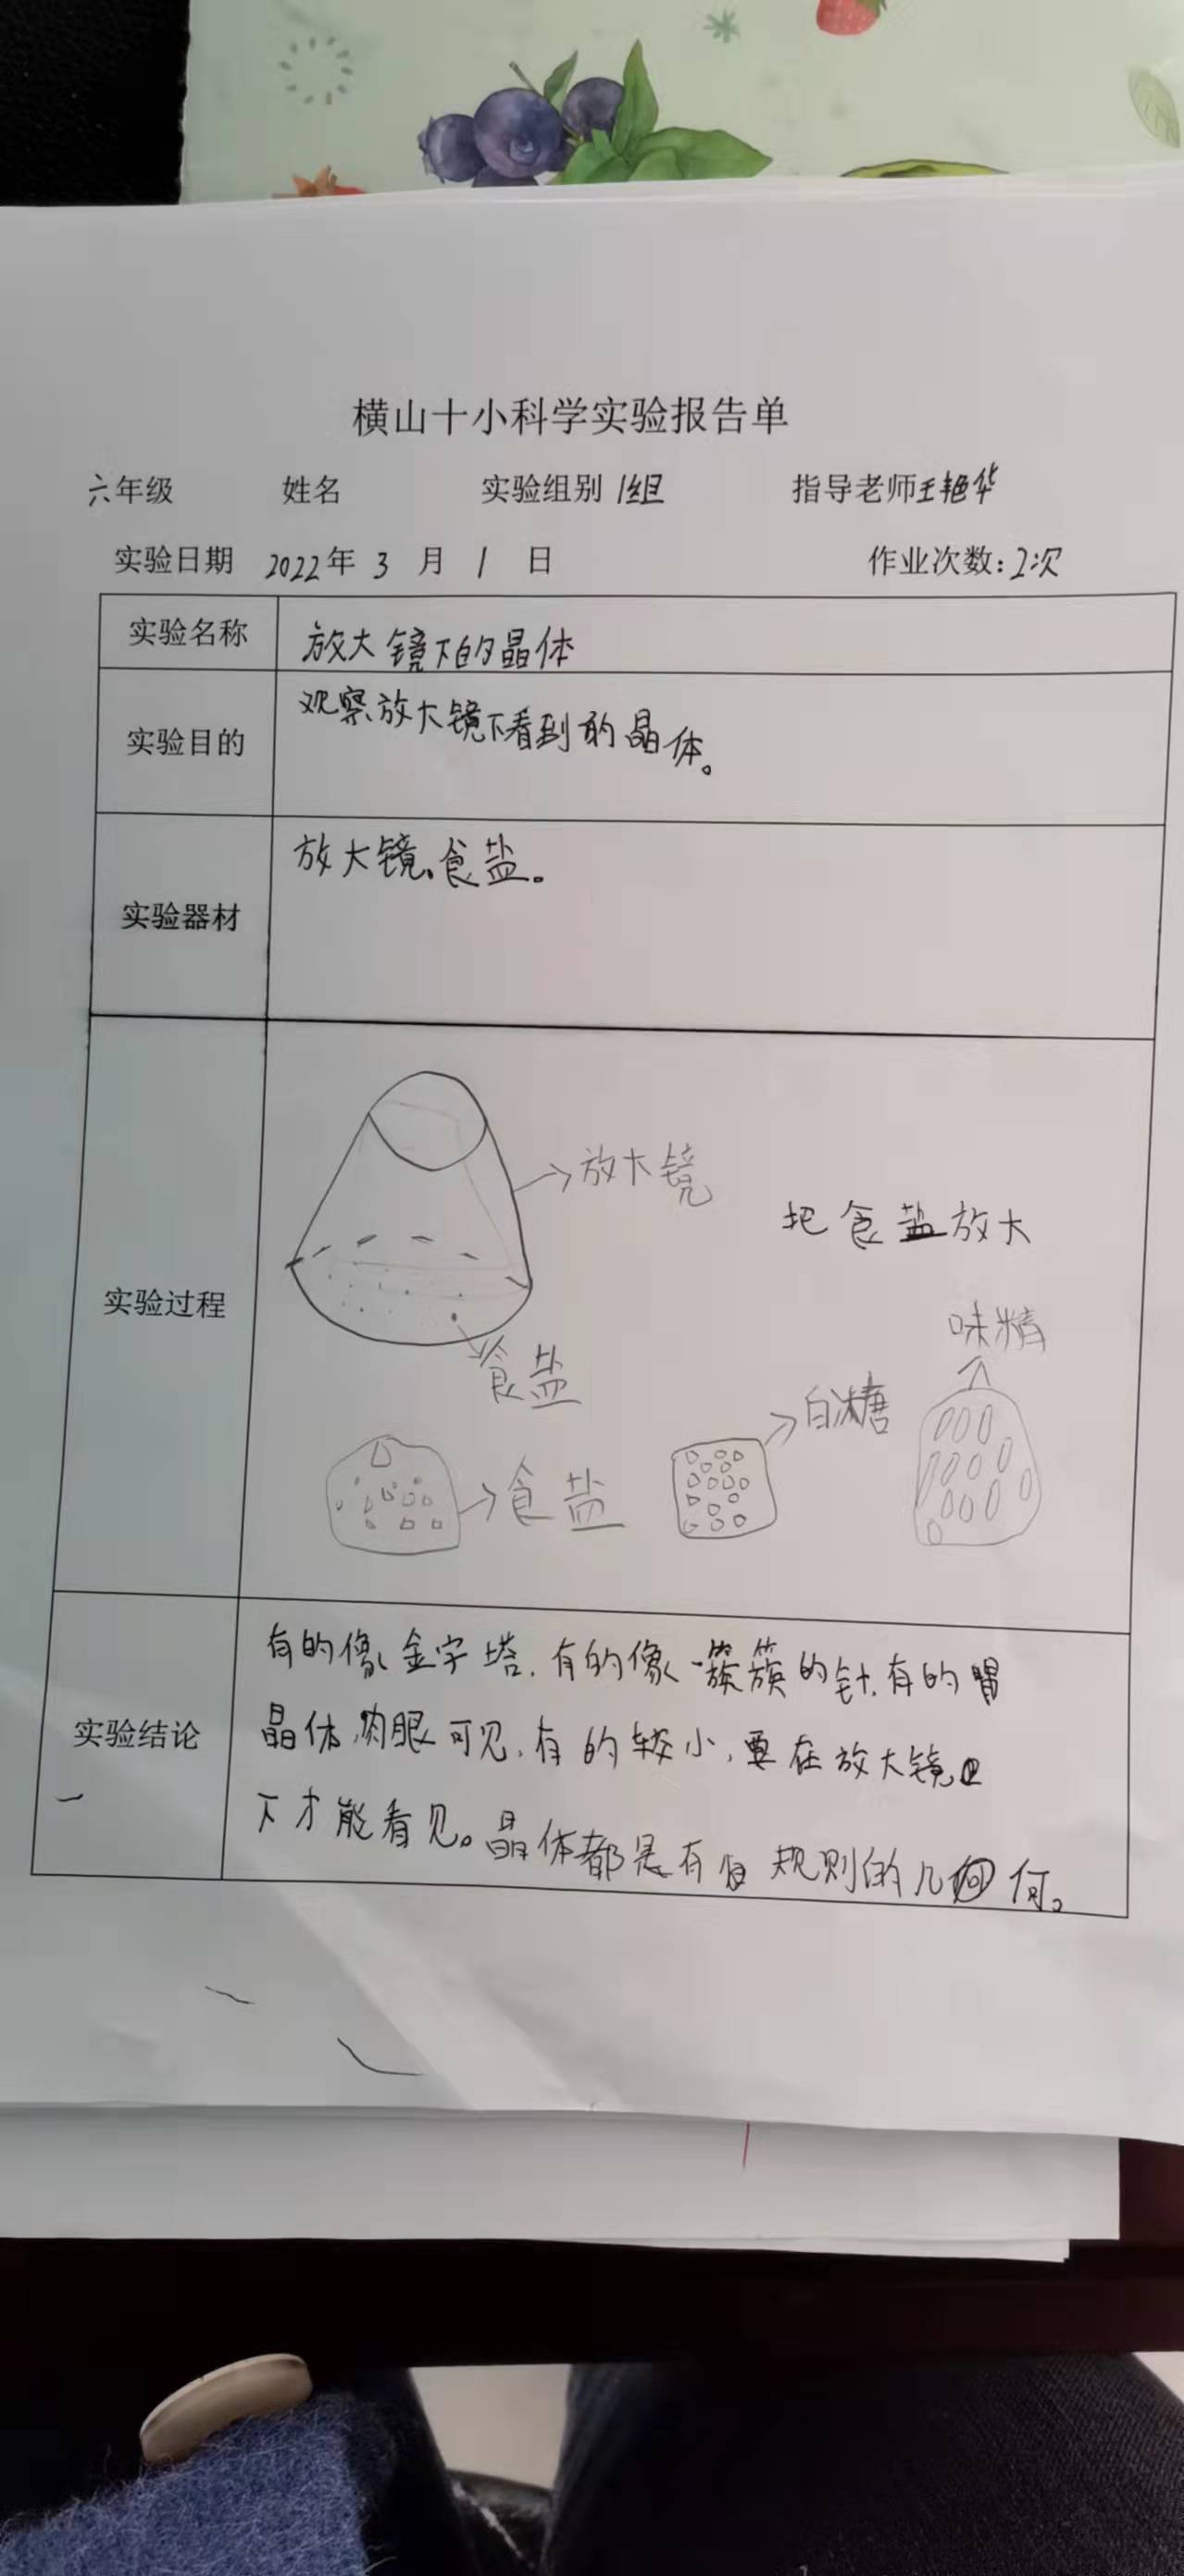 横山十小科学实验报告单
六年级 姓名 实验组别 1组 指导老师王艳华
实验日期 2022年 3 月 1 日 作业次数:2次
实验名称 放大镜下的晶体
实验目的 观察放大镜下看到的晶体。
实验器材 放大镜、食盐。
实验过程
放大镜
把食盐放大
食盐
味精
白糖
食盐
实验结论
有的像金字塔,有的像一簇簇的针,有的
晶体,肉眼可见,有的较小,要在放大镜
下才能看见。晶体都是有 规则的几何。